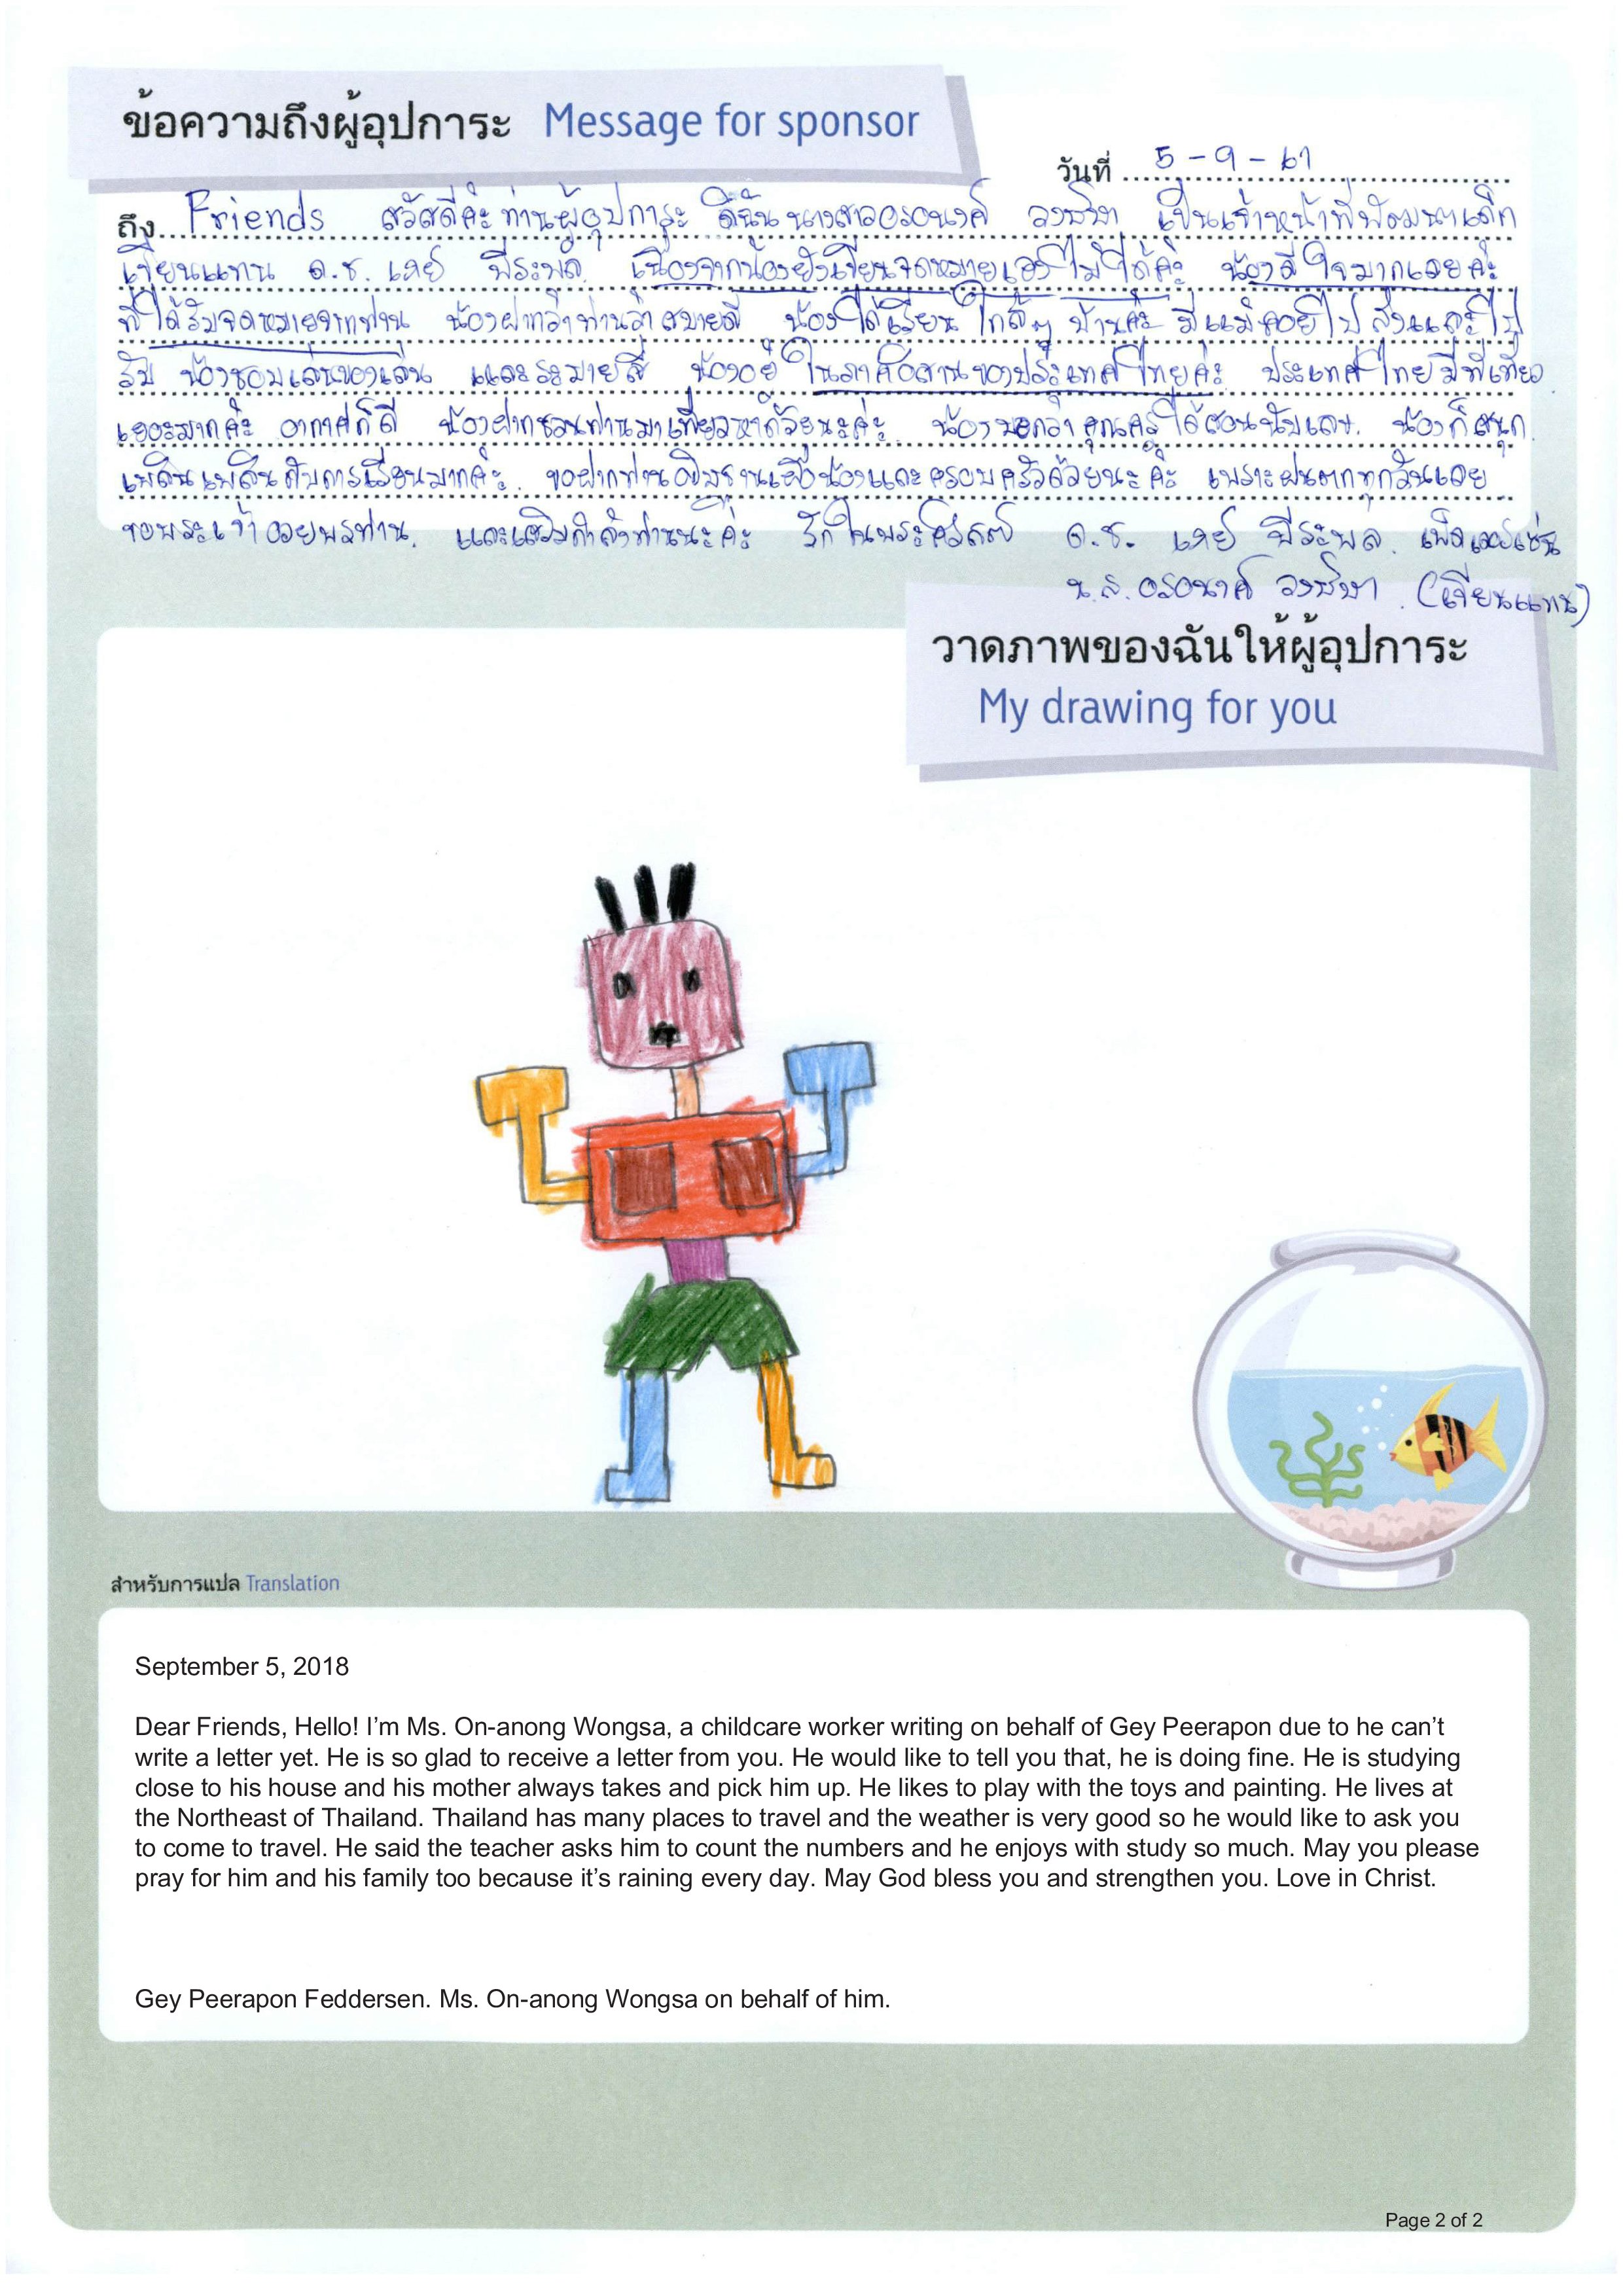 ข้อความถึงผู้อุปการะ Message for sponsor
วันที่ 5-9-61
ถึง Friends สวัสดีค่ะ ท่านผู้อุปการะ ดิฉัน นางสาวอรอนงค์ วงษ์ษา เป็นเจ้าหน้าที่พัฒนาเด็ก
เขียนแทน ด.ช. เกย์ พีระพล เนื่องจากน้องยังเขียนจดหมายเองไม่ได้ค่ะ น้องดีใจมากเลยค่ะ
ที่ได้รับจดหมายจากท่าน น้องฝากว่าท่านว่า สบายดี น้องได้เรียนใกล้ๆ บ้านค่ะ มีแม่คอยไปส่งและไป
รับ น้องชอบเล่นของเล่น และระบายสี น้องอยู่ในภาคอีสานของประเทศไทยค่ะ ประเทศไทยมีที่เที่ยว
เยอะมากค่ะ อากาศก็ดี น้องฝากชวนท่านมาเที่ยวหาด้วยนะค่ะ น้องบอกว่า คุณครูได้สอนนับเลข น้องก็สนุก
เพลิดเพลินกับการเรียนมากค่ะ ขอฝากท่านอธิษฐานเผื่อน้องและครอบครัวด้วยนะค่ะ เพราะฝนตกทุกวันเลย
ขอพระเจ้าอวยพรท่าน และเสริมกำลังท่านนะค่ะ รักในพระคริสต์ ด.ช. เกย์ พีระพล เฟ็ดเดอร์เซ่น
น.ส. อรอนงค์ วงษ์ษา (เขียนแทน)
วาดภาพของฉันให้ผู้อุปการะ
My drawing for you
สำหรับการแปล Translation
September 5, 2018
Dear Friends, Hello! I’m Ms. On-anong Wongsa, a childcare worker writing on behalf of Gey Peerapon due to he can’t
write a letter yet. He is so glad to receive a letter from you. He would like to tell you that, he is doing fine. He is studying
close to his house and his mother always takes and pick him up. He likes to play with the toys and painting. He lives at
the Northeast of Thailand. Thailand has many places to travel and the weather is very good so he would like to ask you
to come to travel. He said the teacher asks him to count the numbers and he enjoys with study so much. May you please
pray for him and his family too because it’s raining every day. May God bless you and strengthen you. Love in Christ.
Gey Peerapon Feddersen. Ms. On-anong Wongsa on behalf of him.
Page 2 of 2